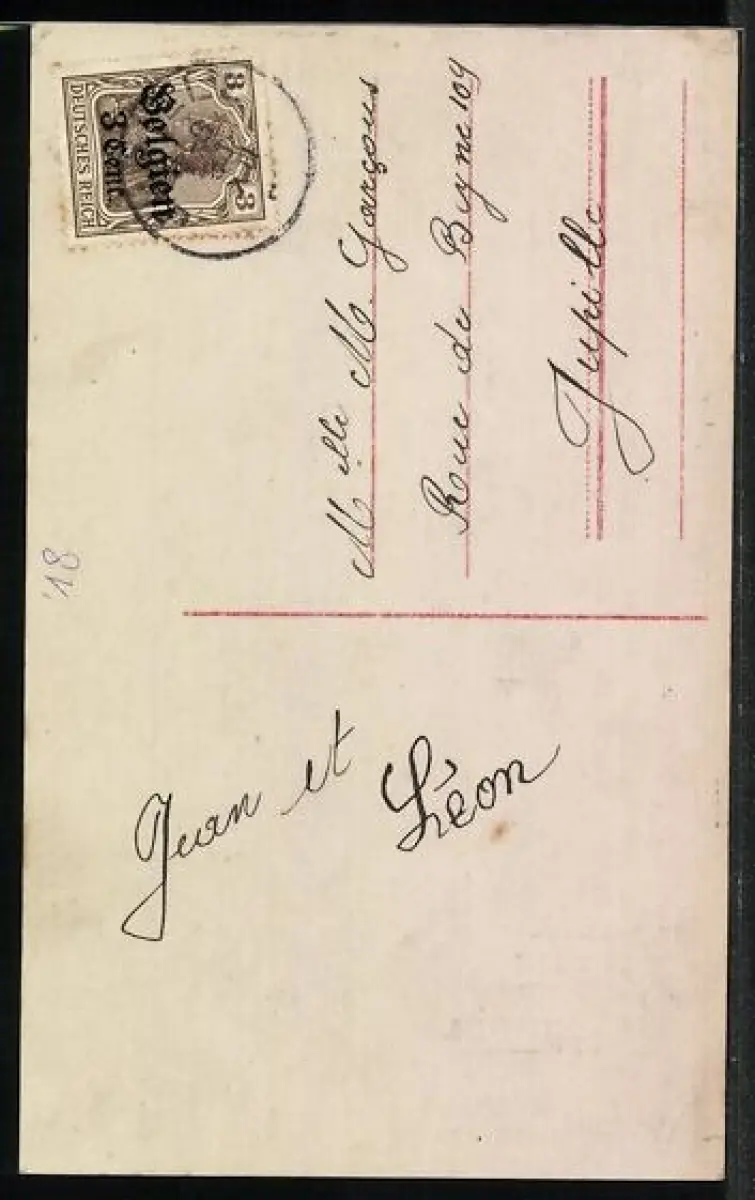 3 3
Belgien
3 Cent.
DEUTSCHES REICH
Mlle M. Garçons
Rue de Beyne 109
Jupille
'18
Jean et
Léon